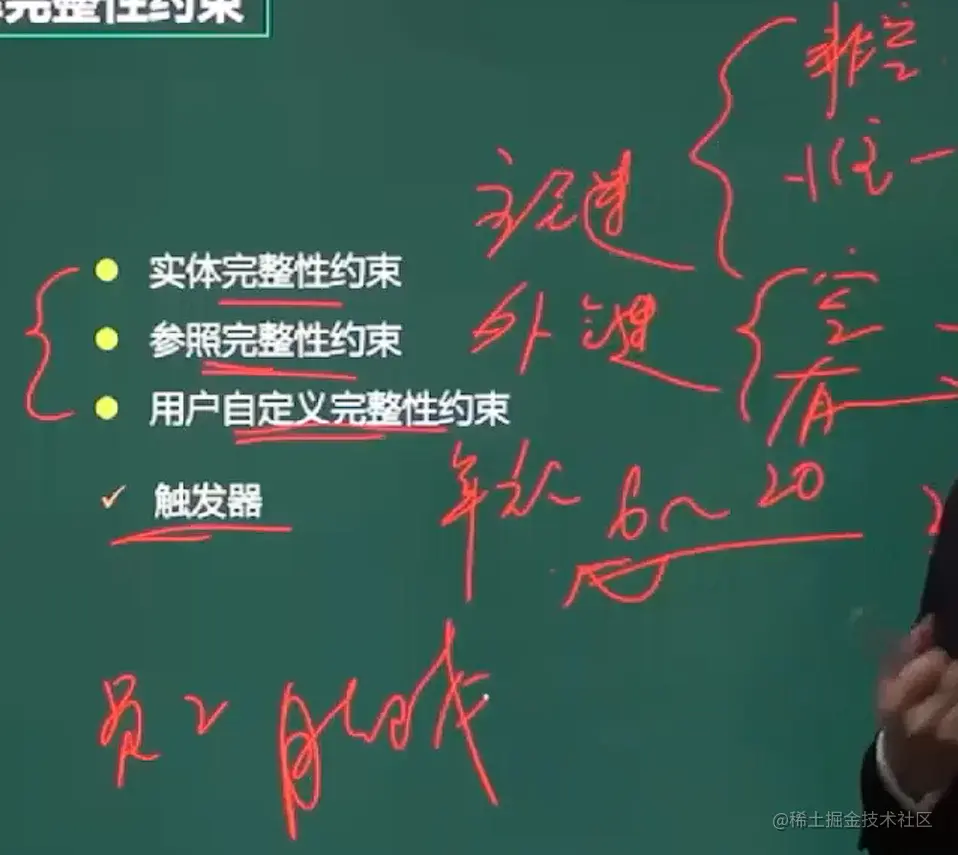 完整性约束
非空
唯一
主键
实体完整性约束
外键
空
参照完整性约束
用户自定义完整性约束
年龄 6~20
触发器
员工
@稀土掘金技术社区